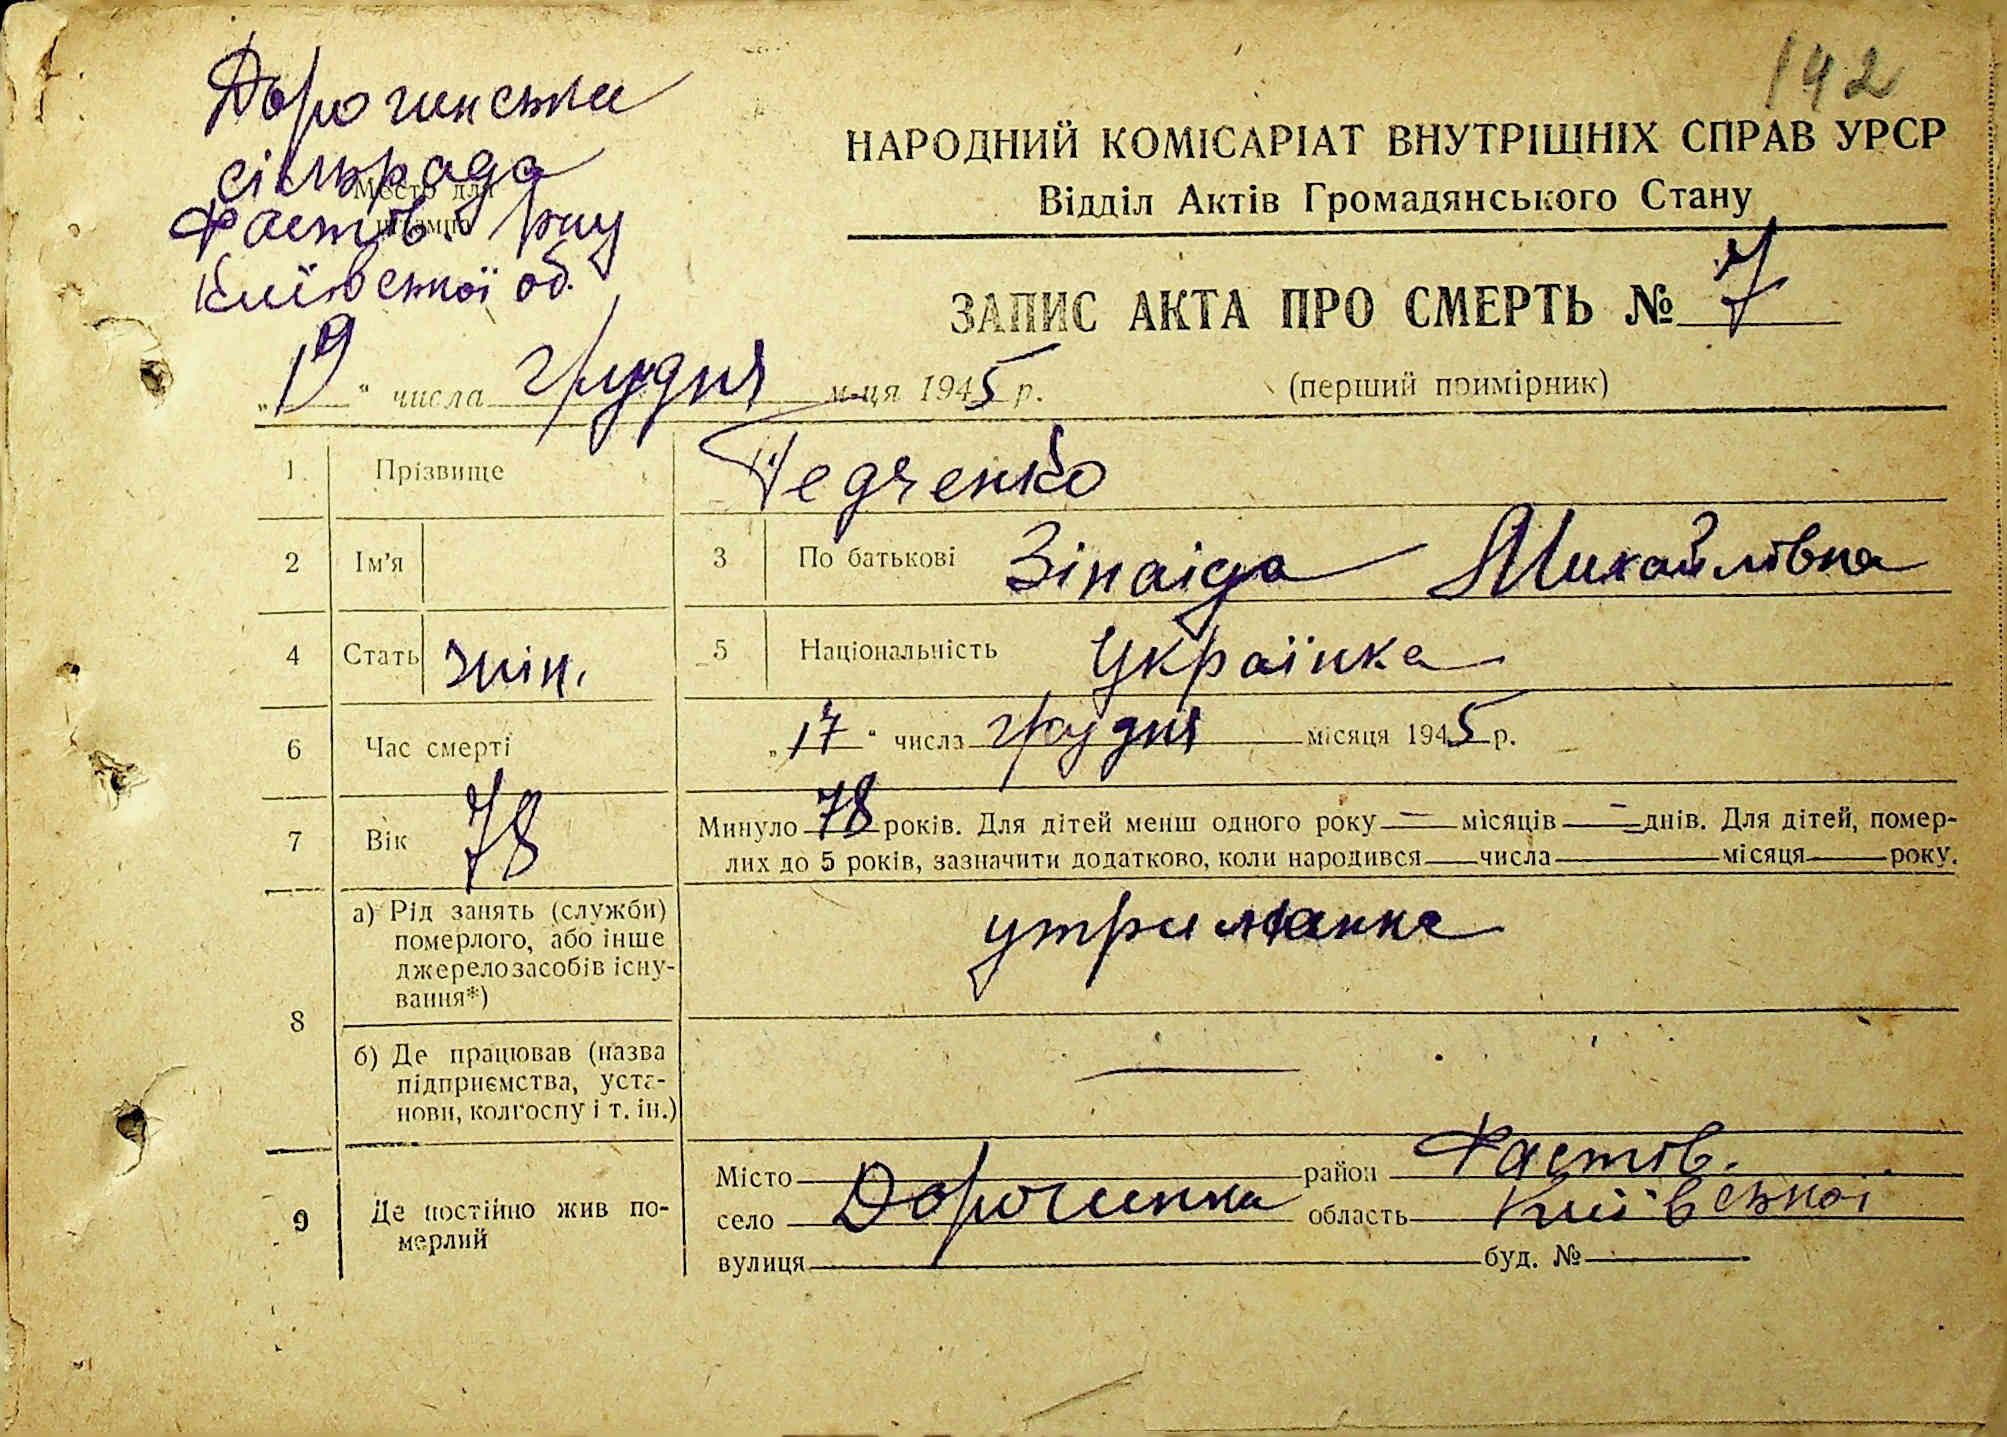 142
Дорогинська
сільрада
Место для
штампа
Фастів. р-ну
Київської об.
НАРОДНИЙ КОМІСАРІАТ ВНУТРІШНІХ СПРАВ УРСР
Відділ Актів Громадянського Стану
ЗАПИС АКТА ПРО СМЕРТЬ № 7
(перший примірник)
„19“ числа грудня м-ця 1945 р.
1 Прізвище Федченко
2 Ім'я 3 По батькові Зінаіда Михайлівна
4 Стать жін. 5 Національність Українка
6 Час смерті „17“ числа грудня місяця 1945 р.
7 Вік 78 Минуло 78 років. Для дітей менш одного року — місяців — днів. Для дітей, помер-
лих до 5 років, зазначити додатково, коли народився числа місяця року.
8 а) Рід занять (служби)
померлого, або інше
джерело засобів існу-
вання*)
утриманка
б) Де працював (назва
підприємства, уста-
нови, колгоспу і т. ін.)
—
9 Де постійно жив по-
мерлий
Місто район Фастів.
село Дорогинка область Київської
вулиця буд. №